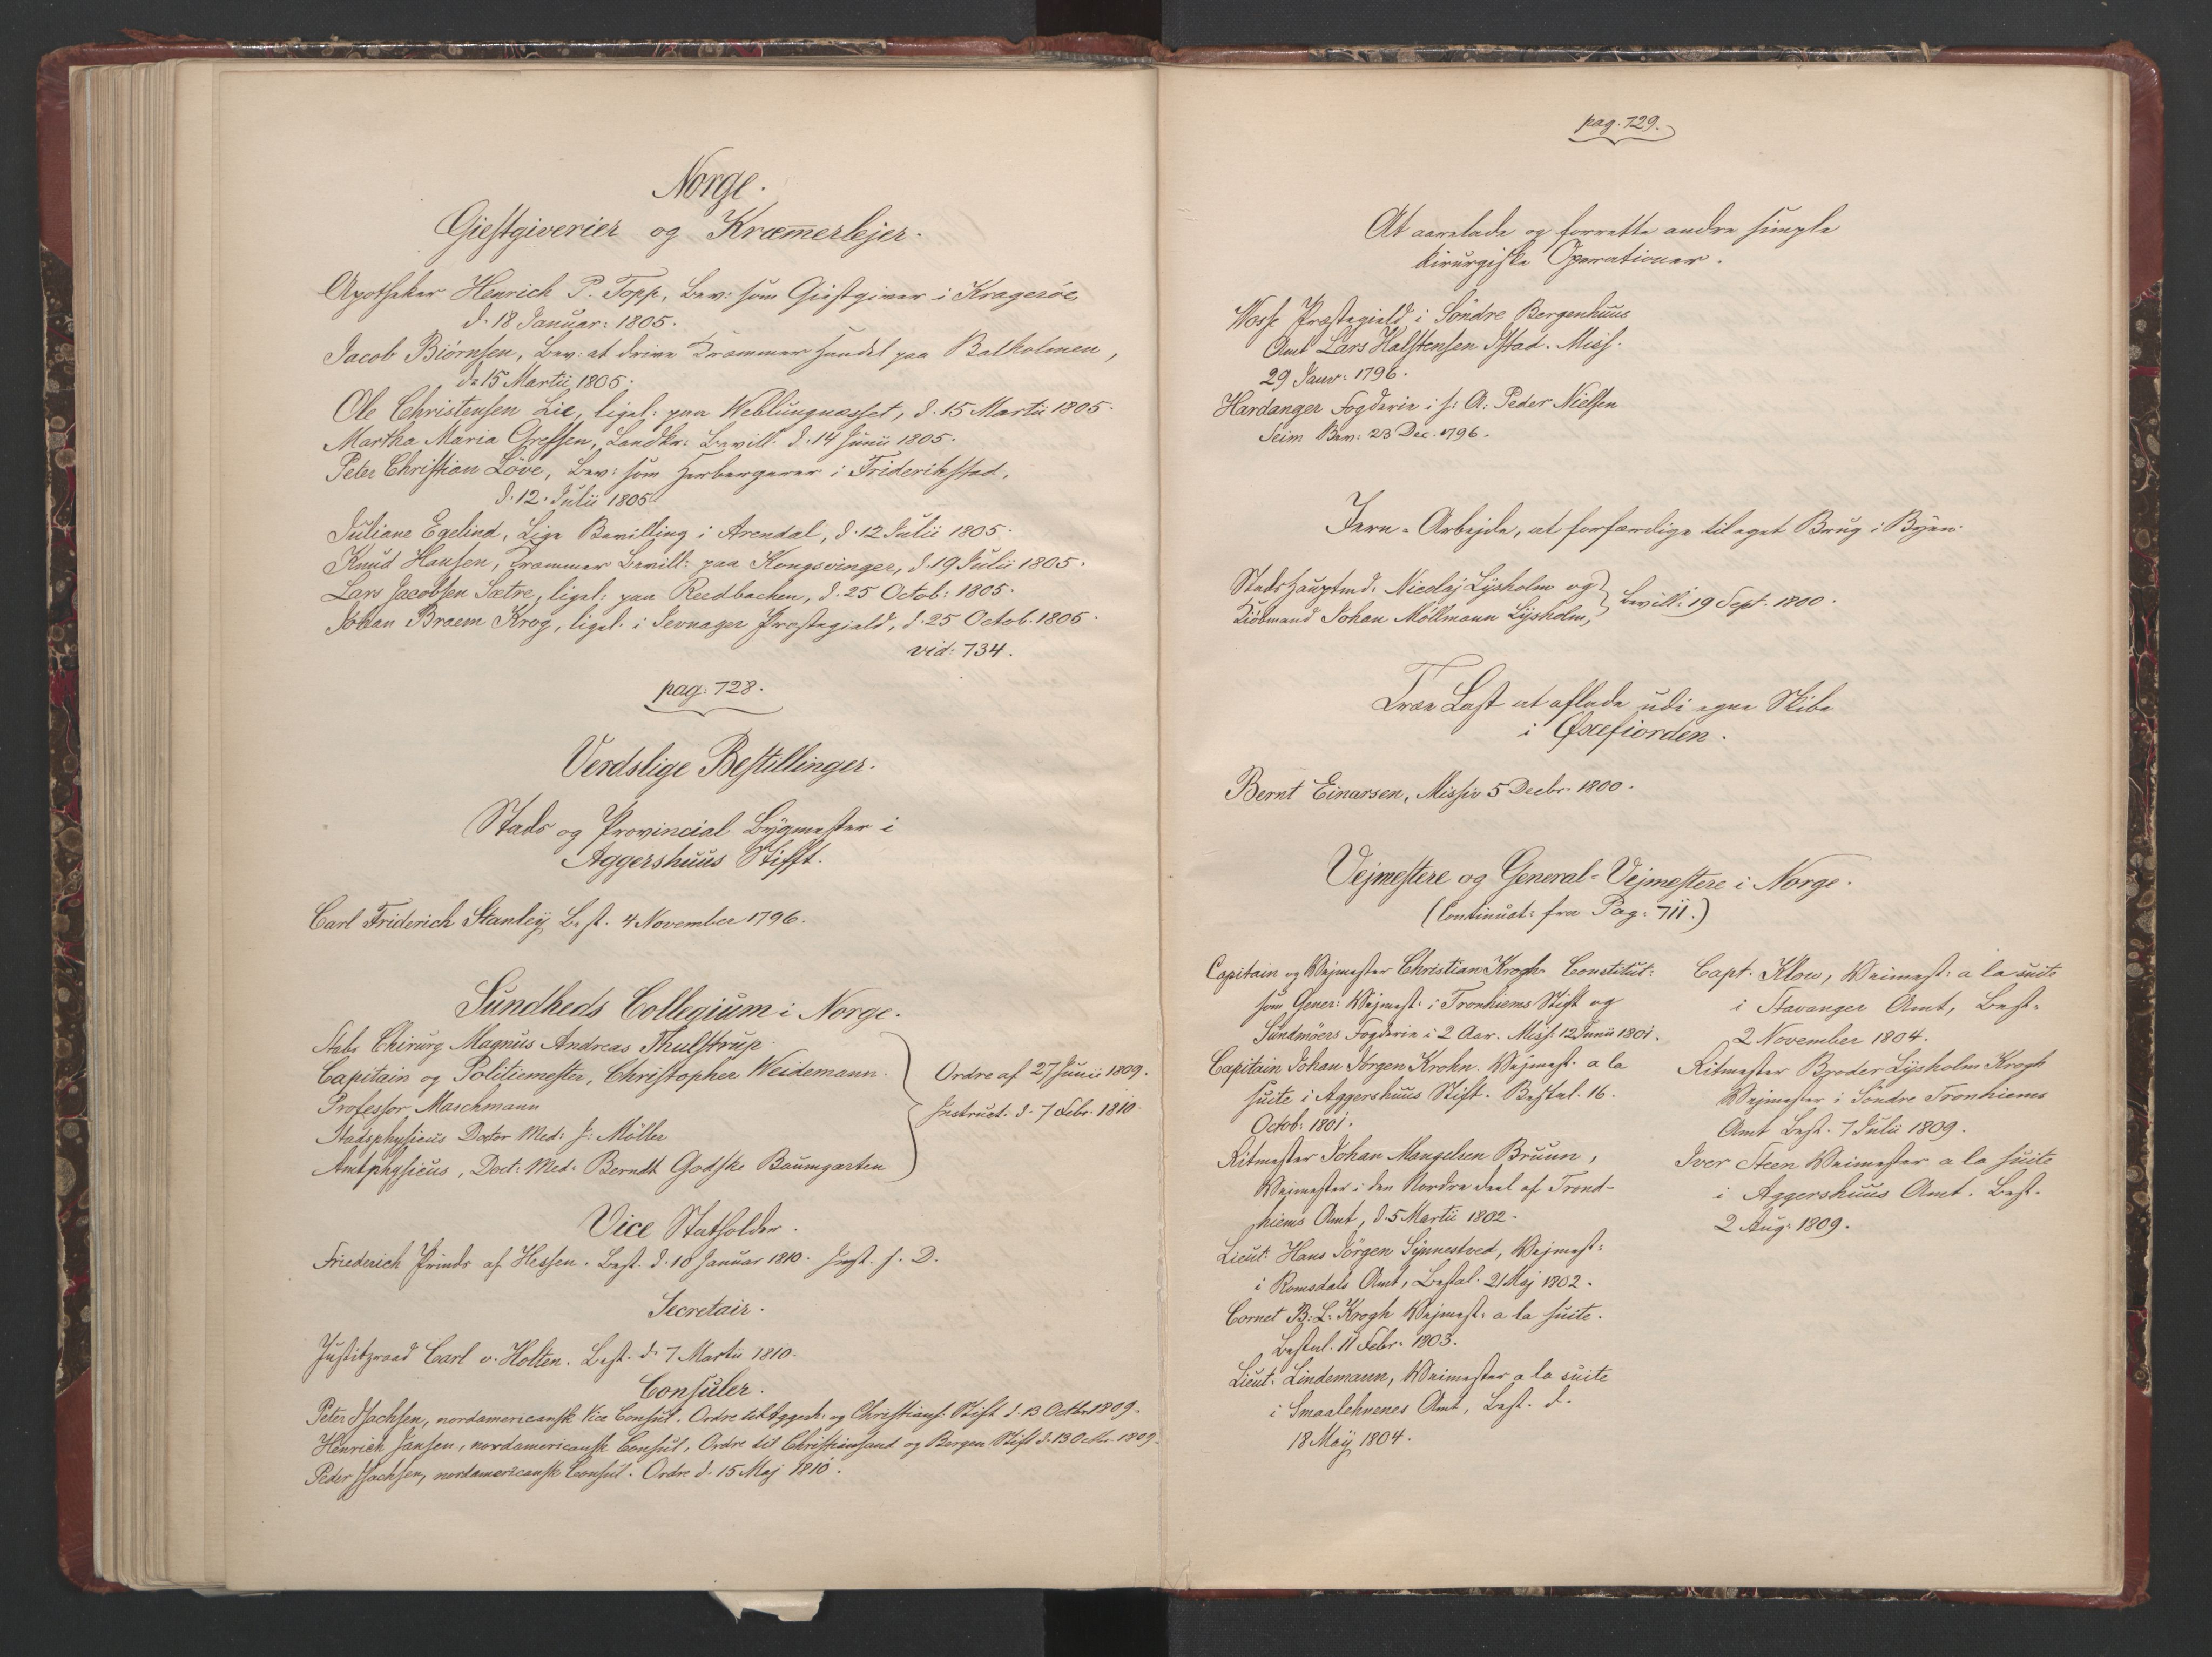 Norge.
Giestgiverier og Kræmerlejer.
Apotheker Henrich P. Topp, Bev: som Giestgiver i Krageröe,
d. 18 Januar: 1805.
Jacob Biörnsen, Bev: at drive Kræmmer Handel paa Batholmen,
d. 15 Martii 1805.
Ole Christensen Lie, ligel: paa Weblungnæsset, d. 15 Martii 1805.
Martha Maria Gressen, Landkr: Bevill. d. 14 Junii 1805.
Peter Christian Löve, Bev: som Herbergerer i Friderikstad,
d. 12. Julii 1805.
Juliane Egelind, Lige Bevilling i Arendal, d. 12 Julii 1805.
Knud Hansen, Kræmmer Bevill: paa Kongsvinger, d. 19 Julii 1805.
Lars Jacobsen Sætre, ligel: paa Reedbachen, d. 25 Octob: 1805.
Johan Braem Krog, ligel. i Jevnager Præstegield, d. 25 Octob. 1805.
vid: 734.
pag: 728.
Verdslige Bestillinger.
Stads og Provincial Bygmester i
Aggershuus Stifft.
Carl Friderich Stanley Best. 4 November 1796.
Sundheds Collegium i Norge.
Stabs Chirurg Magnus Andreas Thulstrup.
Capitain og Politiemester, Christopher Weidemann.
Professor Maschmann
Stadsphysicus Doctor Med: J: Möller
Amtphysicus, Doct: Med: Berndt Godske Baumgarten
Ordre af 27 Junii 1809.
Instruct. d. 7 Febr. 1810.
Vice Statholder.
Friederich Prinds af Hessen. Best. d. 10 Januar 1810. Inst. s. D.
Secretair.
Justitzraad Carl v. Holten. Best. d. 7 Martii 1810.
Consuler.
Peter Isachsen, nordamericansk Vice Consul. Ordre til Aggersh: og Christians: Stift d. 13 Octbr 1809.
Henrich Jansen, nordamericansk Consul, Ordre til Christiansand og Bergen Stift d. 13 Octbr. 1809.
Peder Isachsen, nordamericansk Consul. Ordre d. 15 Maj 1810.
pag. 729.
At aarelade og forrette andre simple
kirurgiske Operationer.
Wosse Præstegield i Söndre Bergenhuus
Amt Lars Halstensen Istad. Miss.
29 Janv: 1796.
Hardanger Fogderie i s: A: Peder Nielsen
Seim Bev: 23 Dec. 1796.
Jern-Arbejde, at forfærdige til eget Brug i Byen.
Stadshauptmd: Nicolaj Lysholm og
Kiöbmand Johan Möllmann Lysholm,
Bevill: 19 Sept. 1800.
Træe Last at aflade udi egne Skibe
i Øxefiorden.
Bernt Einarsen, Missiv 5 Decbr. 1800.
Vejmestere og General-Vejmestere i Norge.
(Continuat: fra Pag: 711.)
Capitain og Vejmester Christian Krogh Constitut:
som Gener: Vejmest: i Tronhiems Stift og
Sundmöers Fogderie i 2 Aar. Miss. 12 Junii 1801.
Capitain Johan Jörgen Krohn. Vejmest: a la
suite i Aggershuus Stift. Bestal. 16.
Octob: 1801.
Ritmester Johan Mangelsen Bruun,
Vejmester i den Nordre Deel af Trond-
hiems Amt, d. 5 Martii 1802.
Lieut: Hans Jörgen Synnestved, Vejmest:
i Romsdals Amt, Bestal. 21 Maj 1802.
Cornet B: L: Krogh Vejmest: a la suite.
Bestal. 11 Febr. 1803.
Lieut: Lindemann, Veimester a la suite
i Smaalehnenes Amt, Best. d.
18 Maÿ 1804.
Capt. Klow, Veimest: a la suite
i Stavanger Amt, Best.
2 November 1804.
Ritmester Broder Lysholm Krogh
Vejmester i Söndre Tronhiems
Amt Best. 7 Julii 1809.
Iver Steen Veimester a la suite
i Aggershuus Amt. Best.
2 Aug: 1809.